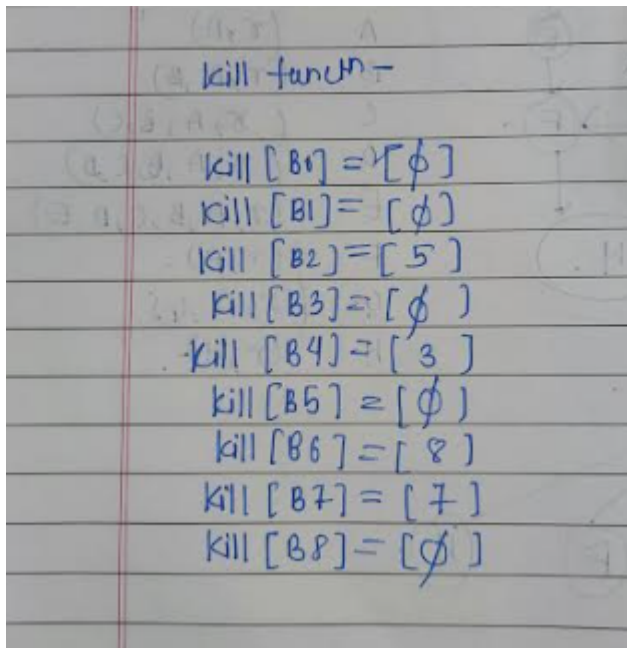 kill functn -
kill [B0] = [φ]
kill [B1] = [φ]
kill [B2] = [ 5 ]
kill [B3] = [φ ]
kill [B4] = [ 3 ]
kill [B5] = [φ]
kill [B6] = [ 8 ]
kill [B7] = [ 7 ]
kill [B8] = [φ]